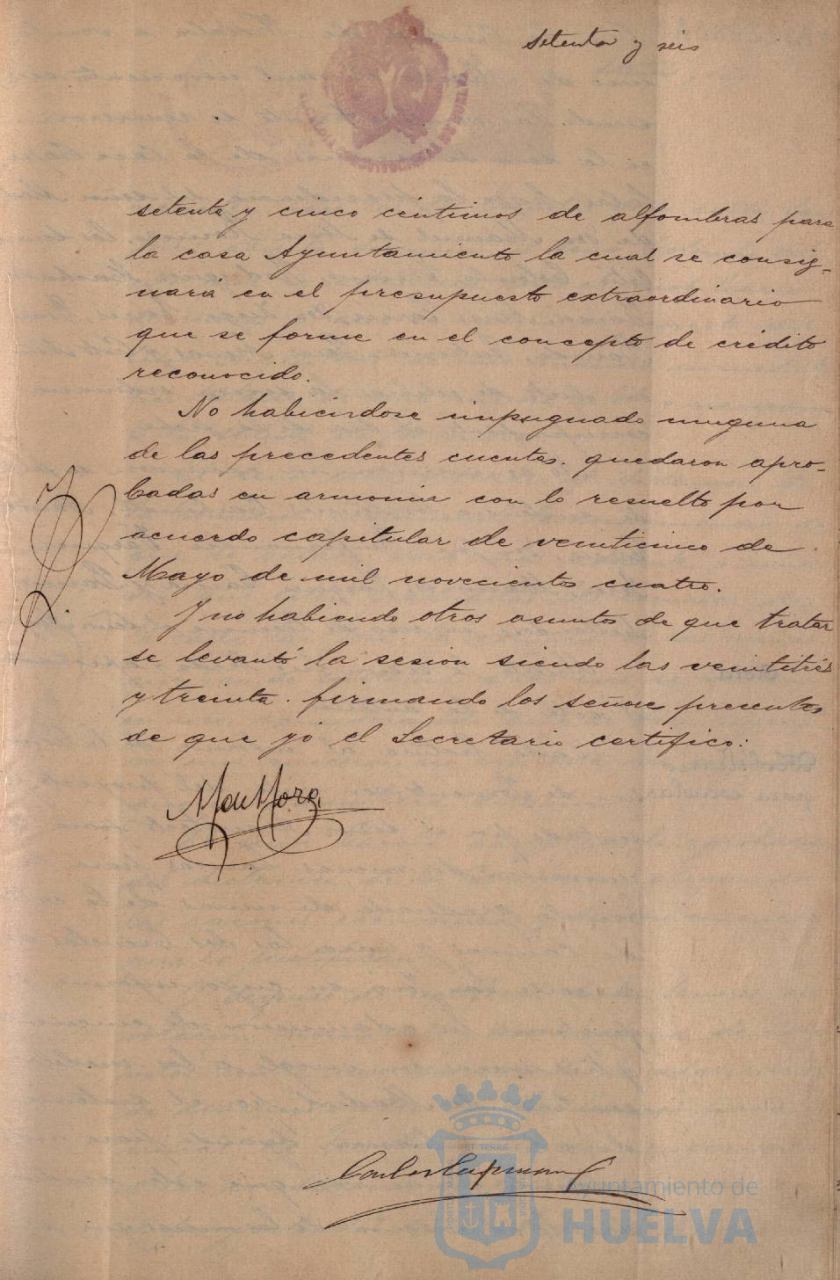 Setenta y seis
setenta y cinco céntimos de alfombras para
la casa Ayuntamiento la cual se consig-
nará en el presupuesto extraordinario
que se forme en el concepto de crédito
reconocido.
No habiéndose impugnado ninguna
de las precedentes cuentas. quedaron apro-
badas en armonia con lo resuelto por
acuerdo capitular de veinticinco de
Mayo de mil novecientos cuatro.
Y no habiendo otros asuntos de que tratar
se levantó la sesion siendo las veintitrés
y treinta. firmando los señores presentes
de que yó el Secretario certifico:
Ayuntamiento de
HUELVA